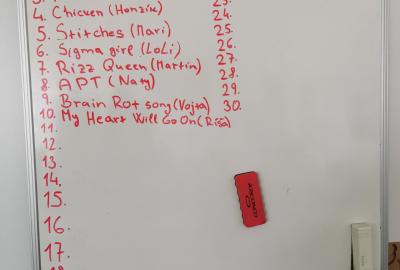 4. Chicken (Honzík)
5. Stitches (Mari)
6. Sigma girl (LoLi)
7. Rizz Queen (Martin)
8. APT (Naty)
9. Brain Rot song (Vojta)
10. My Heart Will Go On (Ríša)
11.
12.
13.
14.
15.
16.
17.
24.
25.
26.
27.
28.
29.
30.
CONCORDE